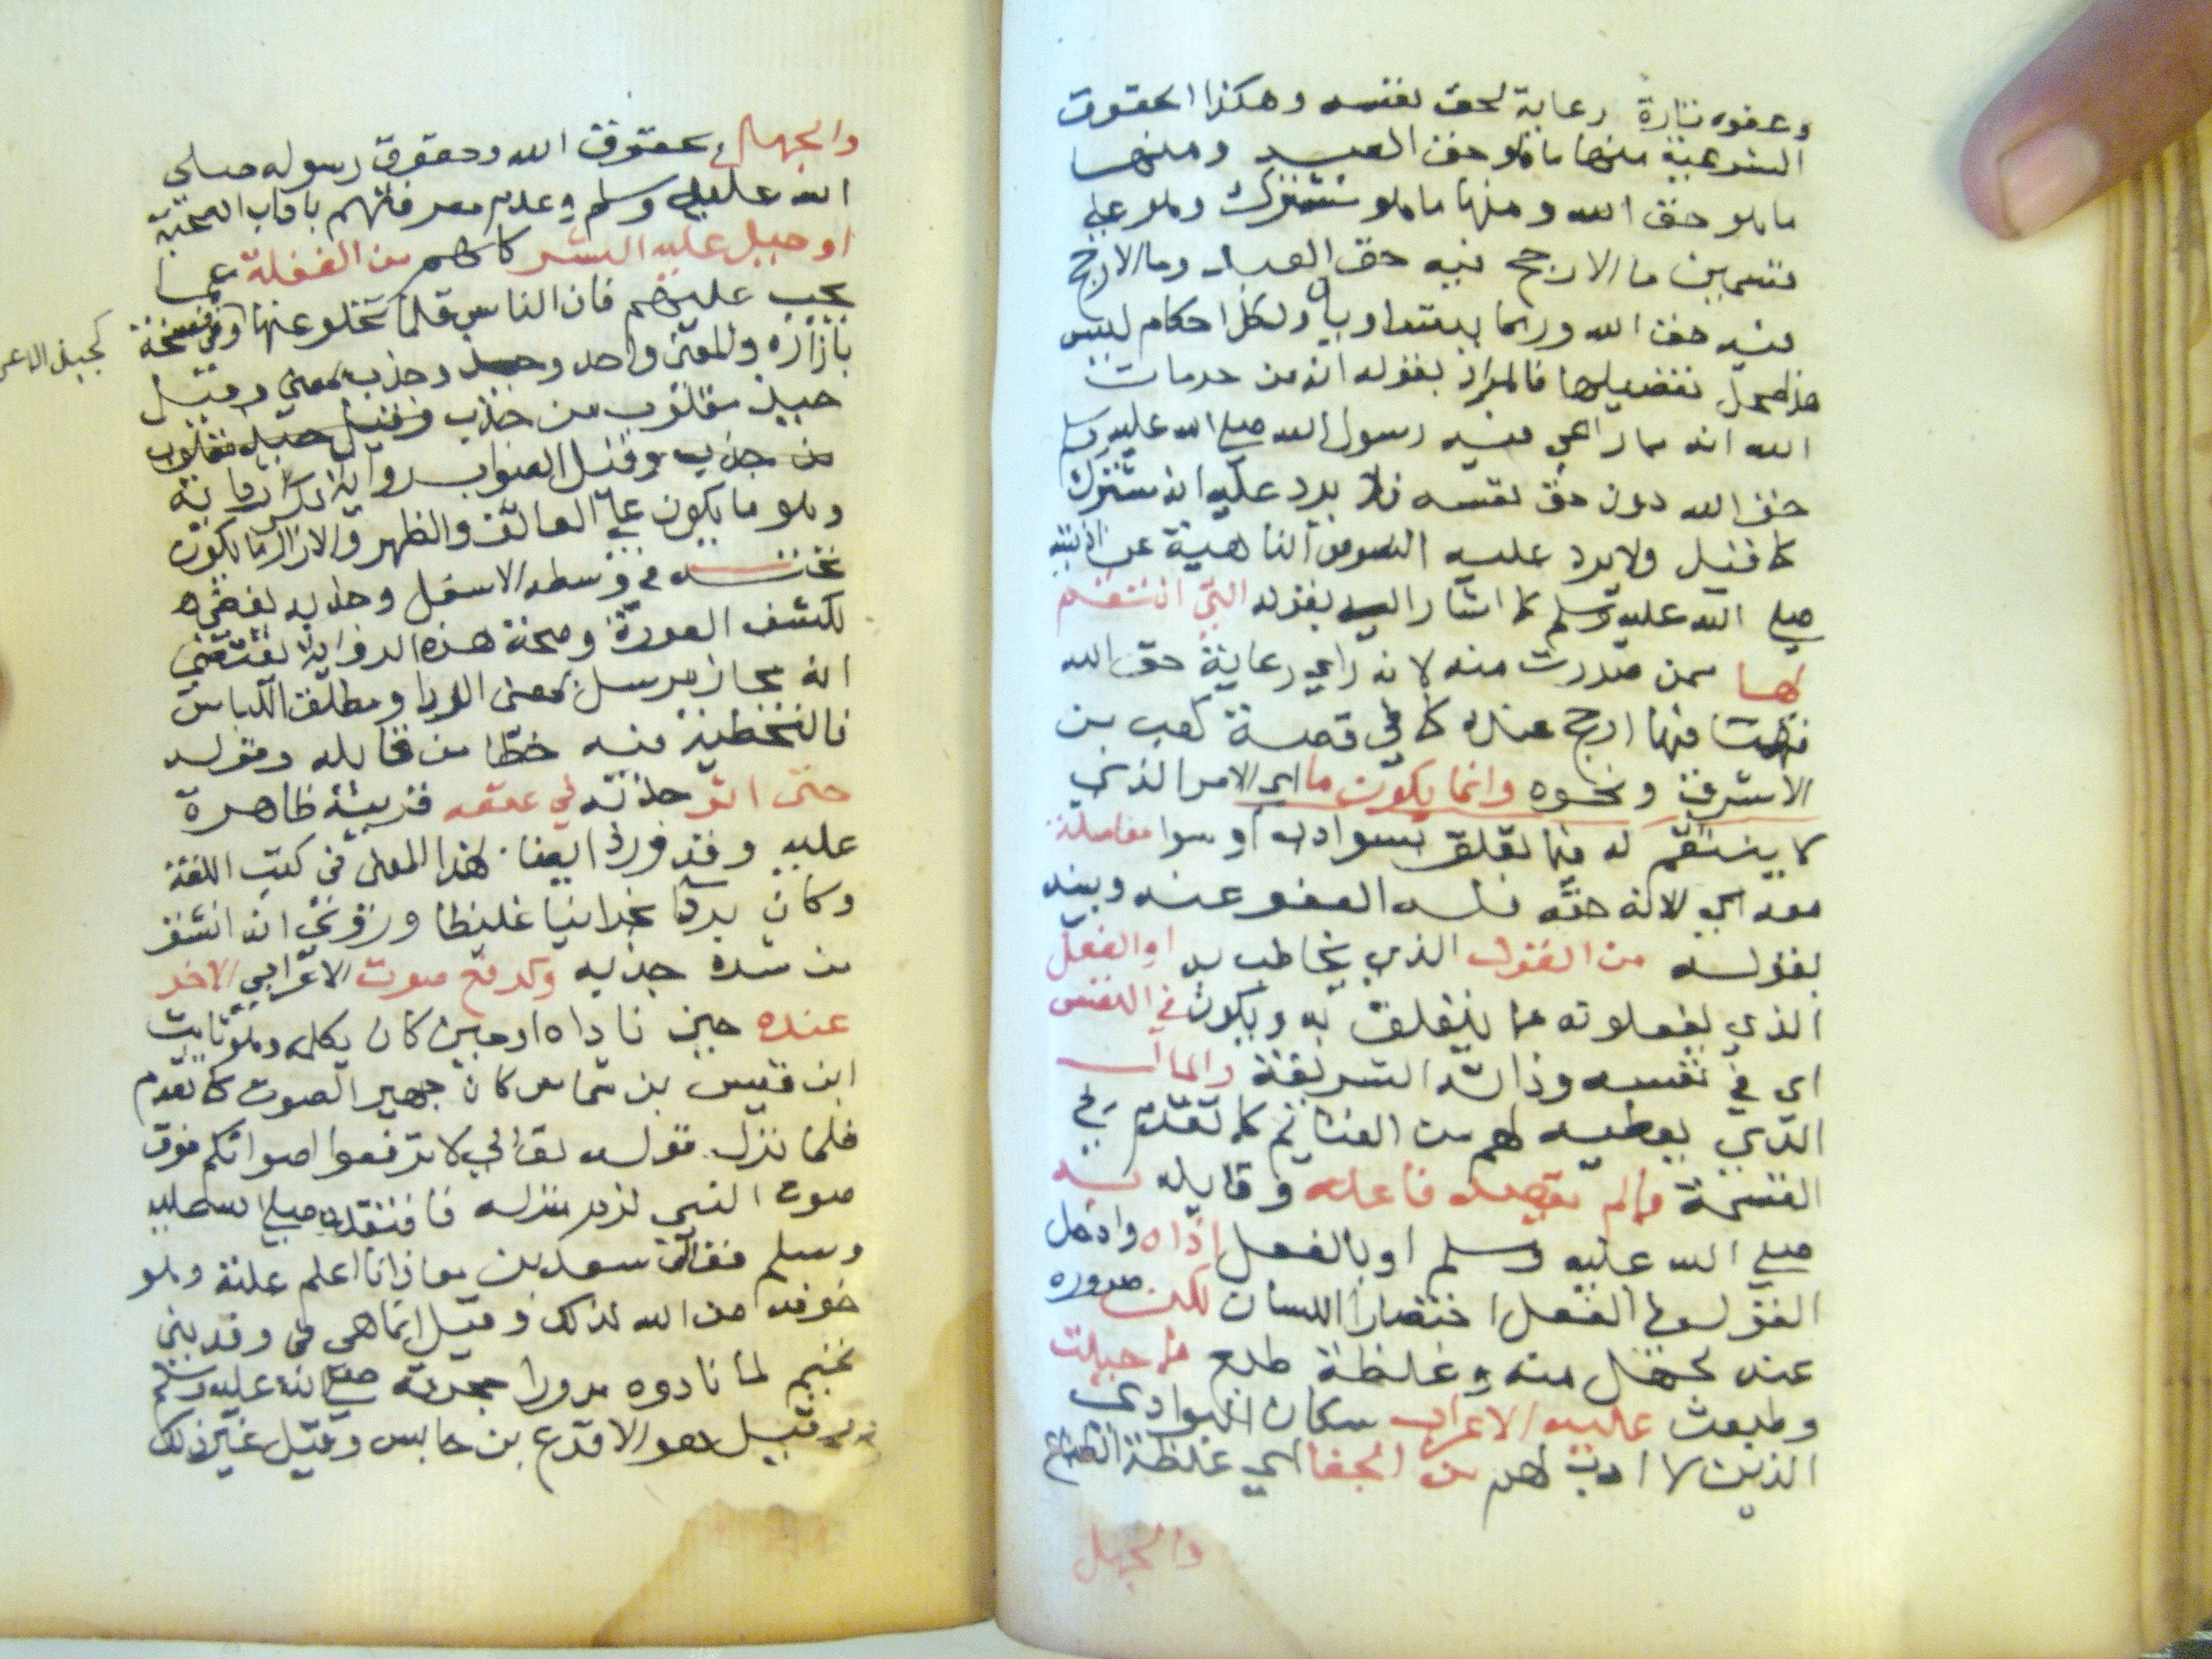 وعفوه تارة رعاية لحق نفسه وهكذا الحقوق
الشرعية منها ما هو حق العبد ومنها
ما هو حق الله ومنها ما هو مشترك وهو على
قسمين ما الارجح فيه حق العبد وما الارجح
فيه حق الله وربما يتساويان ولكل احكام ليس
هذا محل تفصيلها فالمراد بقوله انه من حرمات
الله انه مما راعى فيه رسول الله صلى الله عليه وسلم
حق الله دون حق نفسه فلا يرد عليه انه مشترك
كما قيل ولا يرد عليه النصوص الناهية عن اذيته
صلى الله عليه وسلم كما اشار اليه بقوله التي انتقم
لها ممن صدرت منه لانه راى رعاية حق الله
فيها ارجح عنده كما في قصة كعب بن
الاشرف ونحوه وانما يكون ما اي الامر الذي
لا ينتقم له فيما تعلق بسوء ادب او سوء معاملة
معه اي لانه حقه فله العفو عنه وبينه
بقوله من القول الذي يخاطب به او الفعل
الذي يفعلوته مما يتعلق به ويكون في النفس
اي في نفسه وذاته الشريفة والمال
الذي يعطيه لهم من الغنائم كما تقدم في
القسمة مما لم يقصد فاعله وقايله به
صلى الله عليه وسلم او بالفعل اذاه وادخل
القول في الفعل اختصارا لكن صدوره
عنه لجهل منه وغلظة طبع مما جبلت
وطبعت عليه الاعراب سكان البوادي
الذين لا ادب لهم من الجفا اي غلظة الطباع
والجهل
والجهل بحقوق الله وحقوق رسوله صلى
الله عليه وسلم وعدم معرفتهم باداب الصحبة
او جبل عليه البشر كلهم من الغفلة عما
يجب عليهم فان الناس قلما تخلو عنها وفي نسخة
كجبذ الاعرابي
بازاره والمعنى واحد وجبذ وجذب بمعنى وقيل
جبذ مقلوب من جذب وقيل جبذ مقلوب
من جذب وقيل الصواب رواية بردائه
وهو ما يكون على العاتق والظهر والازار ما يكون
تحته في وسطه الاسفل وجذبه يفضي
لكشف العورة وصحة هذه الرواية تقتضي
انه مجاز مرسل بمعنى الردا ومطلق اللباس
فالتخطئة فيه خطا من قايله وقوله
حتى اثر جذبه في عنقه قرينة ظاهرة
عليه وقد ورد ايضا هذا المعنى في كتب اللغة
وكان بردا نجرانيا غليظا وروي انه انشق
من شدة جذبه وكرفع صوت الاعرابي الاخر
عنده حين ناداه او حين كان يكلمه وهو ثابت
ابن قيس بن شماس كان جهير الصوت كما تقدم
فلما نزل قوله تعالى لا ترفعوا اصواتكم فوق
صوت النبي لزم منزله فافتقده صلى الله عليه
وسلم فقال سعد بن معاذ انا اعلم علته وهو
خوفه من الله لذلك وقيل انما هي في وفد بني
تميم لما نادوه من ورا حجرته صلى الله عليه وسلم
قيل هو الاقرع بن حابس وقيل غير ذلك